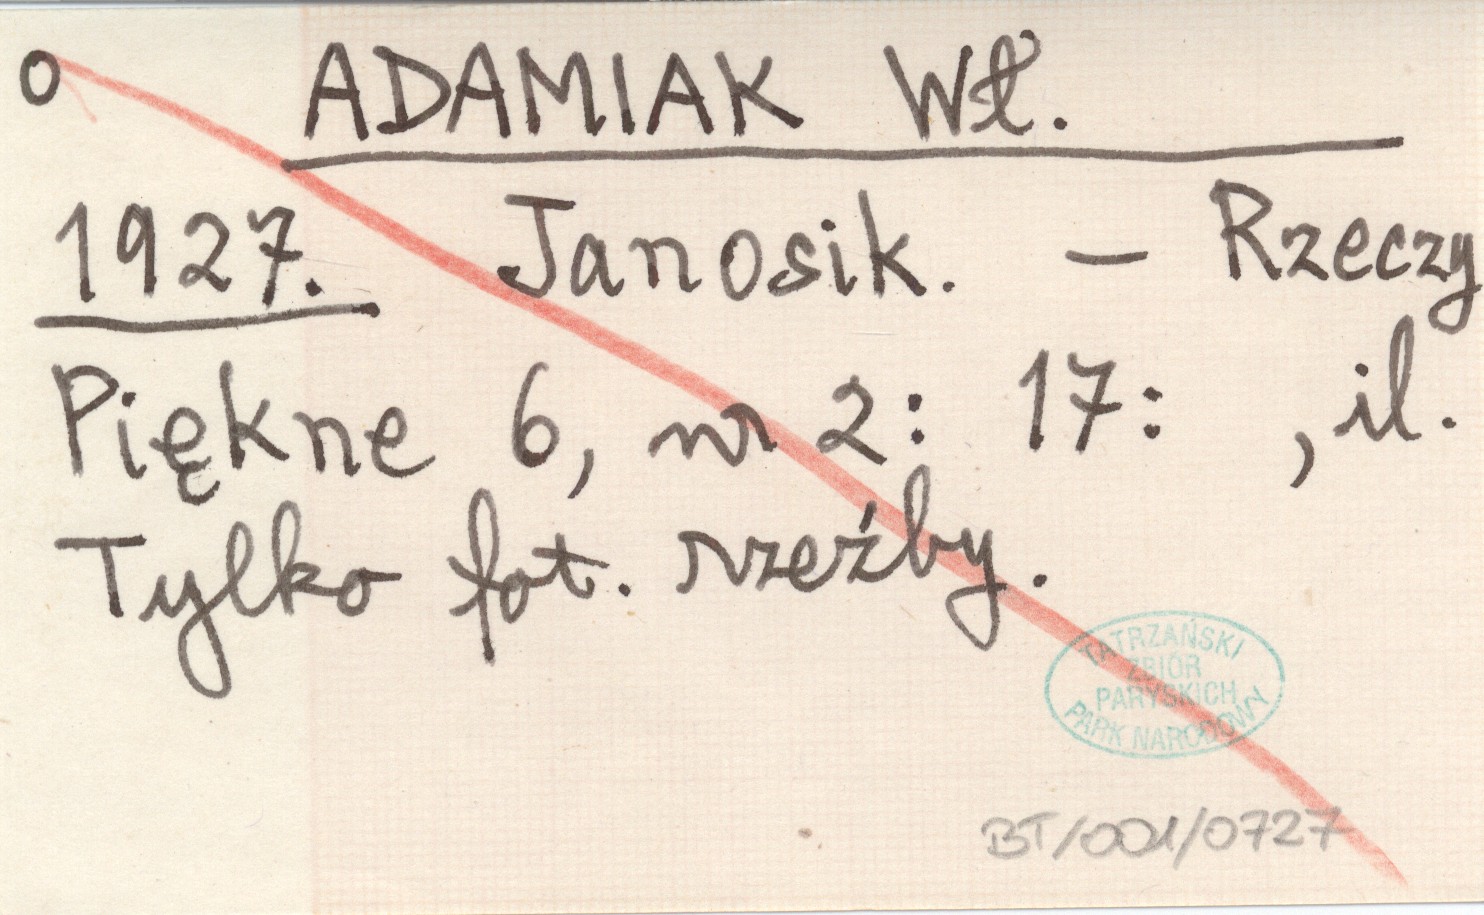 o ADAMIAK Wł.
1927. Janosik. – Rzeczy
Piękne 6, nr 2: 17: , il.
Tylko fot. rzeźby.
TATRZAŃSKI
ZBIÓR
PARYSKICH
PARK NARODOWY
BT/001/0727